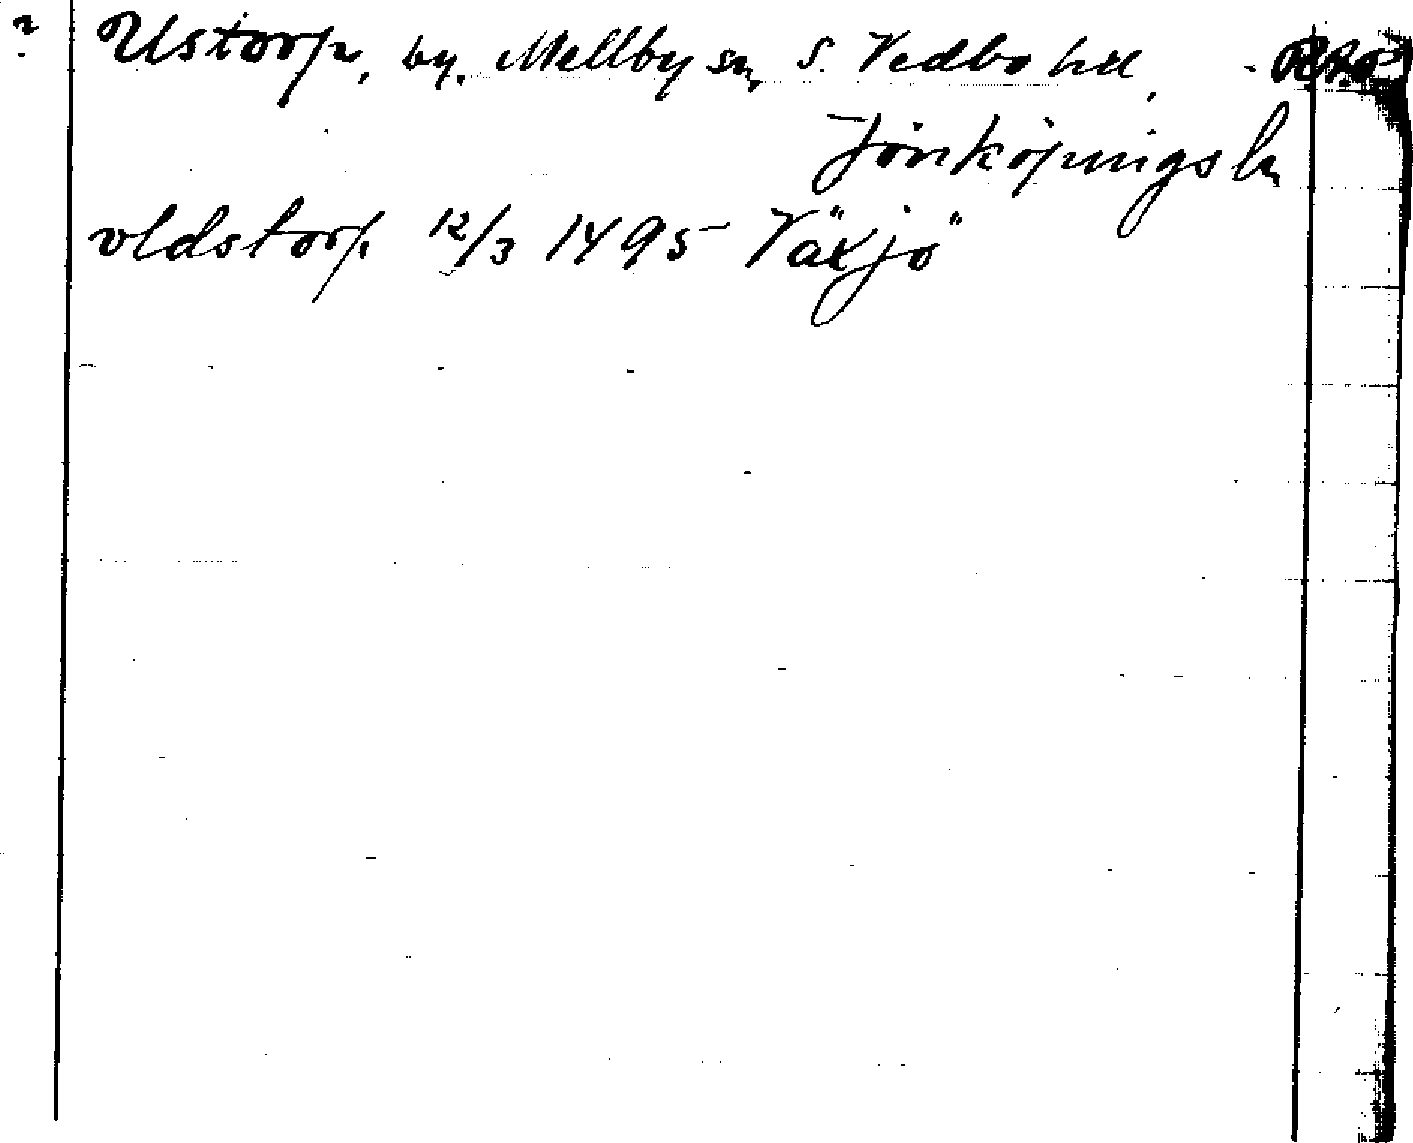 ? Ustorp, by. Mellby sn, S. Vedbo hd,
Jönköpings ln
vldstorp 12/3 1495 Växjö